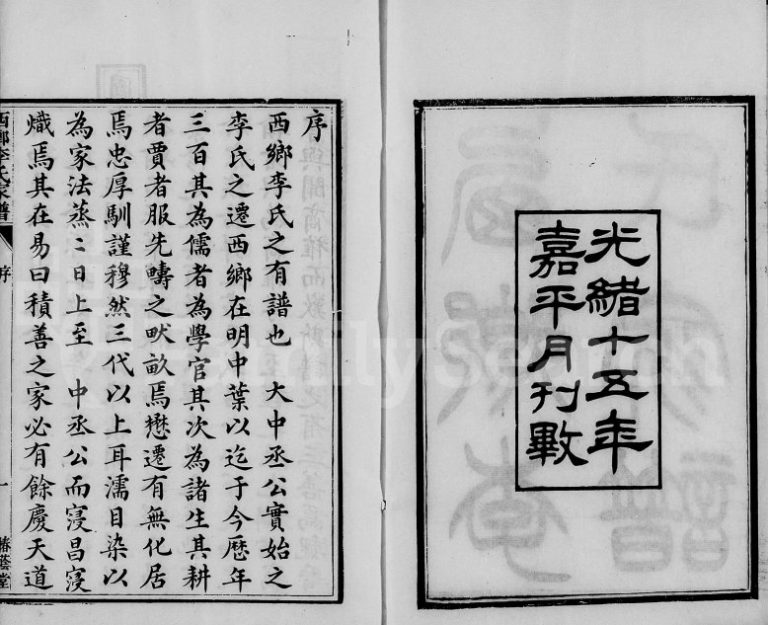 光緒十五年
嘉平月刊數
序
西鄉李氏之有譜也　大中丞公實始之
李氏之遷西鄉在明中葉以迄于今歷年
三百其為儒者為學官其次為諸生其耕
者賈者服先疇之畎畝焉懋遷有無化居
焉忠厚馴謹穆然三代以上耳濡目染以
為家法蒸〻日上至　中丞公而寖昌寖
熾焉其在易曰積善之家必有餘慶天道
西鄉李氏家譜
序
一
椿蔭堂
FamilySearch